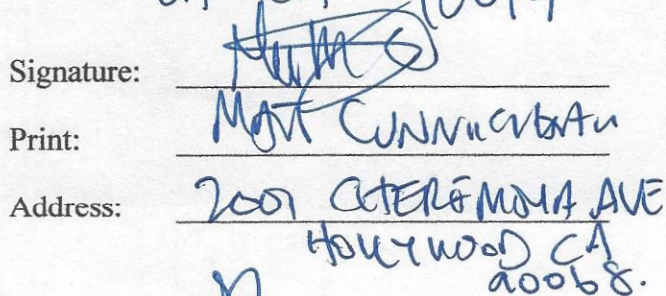 Signature:
Print: MATT CUNNINGHAM
Address: 2001 CHEREMOYA AVE
HOLLYWOOD CA
90068.